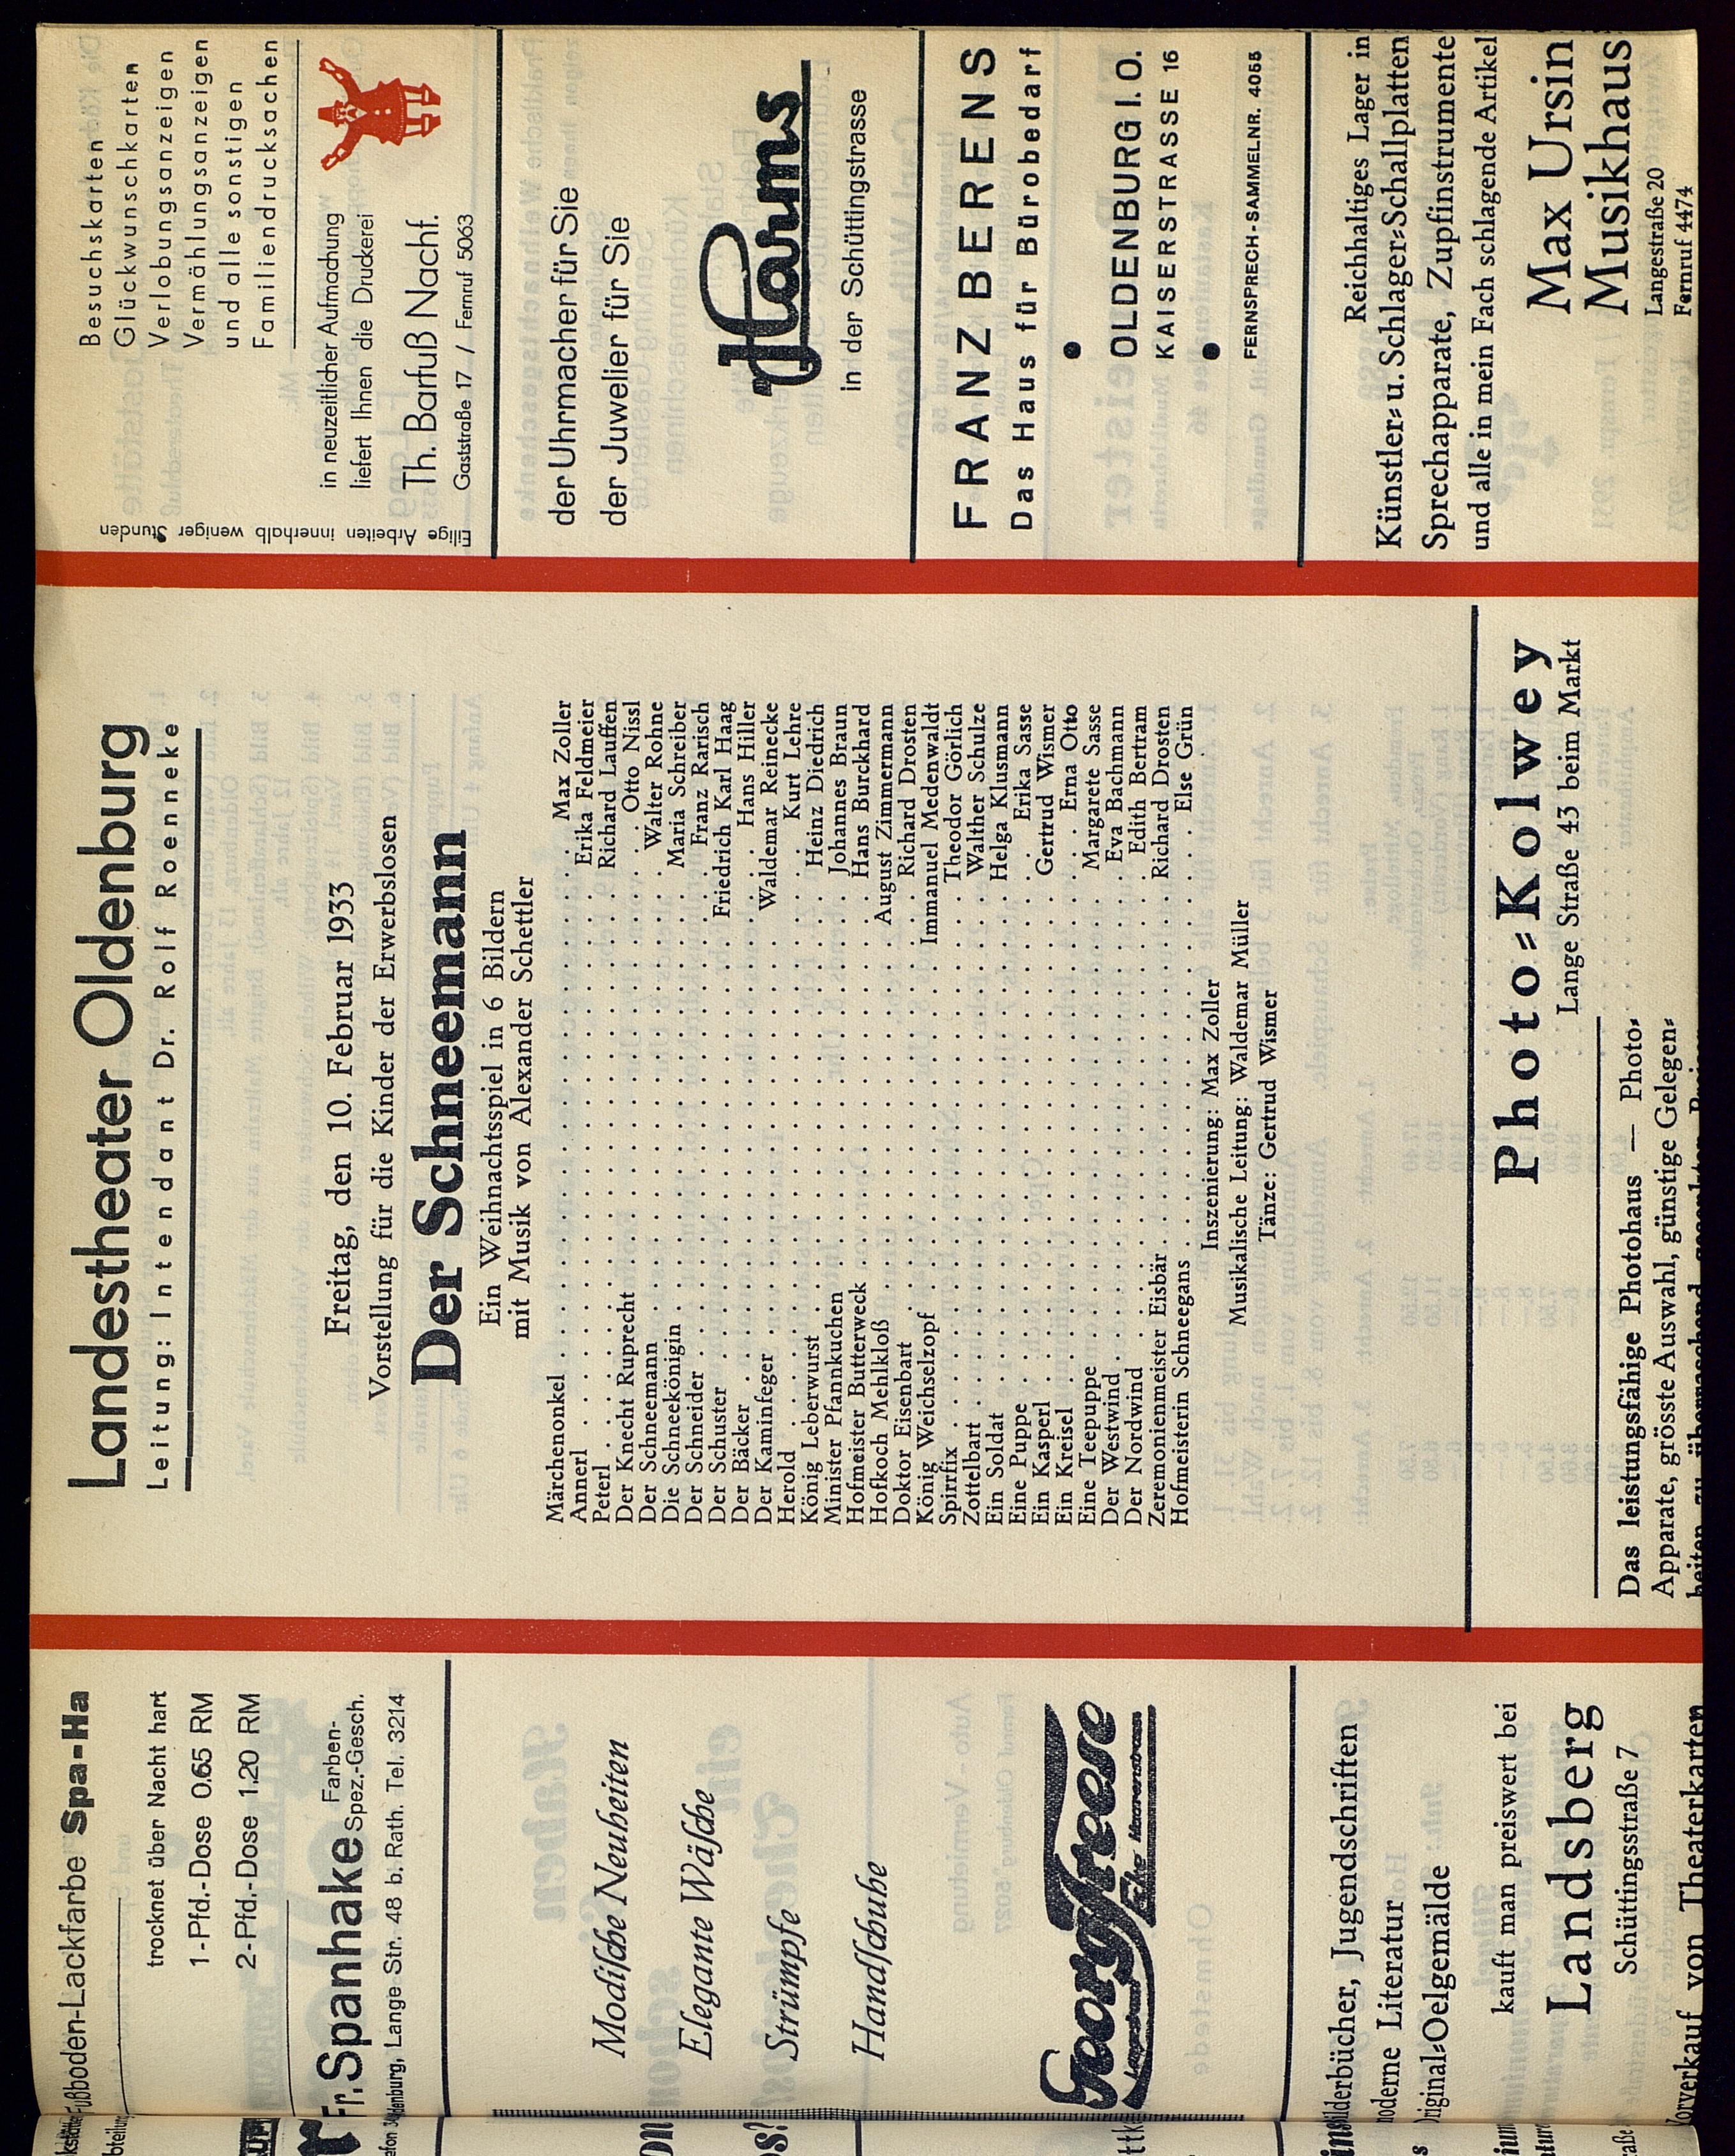 Fußboden-Lackfarbe Spa-Ha
trocknet über Nacht hart
1-Pfd.-Dose 0.65 RM
2-Pfd.-Dose 1.20 RM
Fr. Spanhake Farben-
Spez.-Gesch.
Lange Str. 48 b. Rath. Tel. 3214
Modische Neuheiten
Elegante Wäsche
Strümpfe
Handschuhe
Georg Freese
Langestrasse Ecke Haarenstrasse
Bilderbücher, Jugendschriften
moderne Literatur
Original-Oelgemälde
kauft man preiswert bei
Landsberg
Schüttingsstraße 7
Vorverkauf von Theaterkarten
Landestheater Oldenburg
Leitung: Intendant Dr. Rolf Roenneke
Freitag, den 10. Februar 1933
Vorstellung für die Kinder der Erwerbslosen
Der Schneemann
Ein Weihnachtsspiel in 6 Bildern
mit Musik von Alexander Schettler
Märchenonkel . . . Max Zoller
Annerl . . . Erika Feldmeier
Peterl . . . Richard Lauffen
Der Knecht Ruprecht . . . Otto Nissl
Der Schneemann . . . Walter Rohne
Die Schneekönigin . . . Maria Schreiber
Der Schneider . . . Franz Rarisch
Der Schuster . . . Friedrich Karl Haag
Der Bäcker . . . Hans Hiller
Der Kaminfeger . . . Waldemar Reinecke
Herold . . . Kurt Lehre
König Leberwurst . . . Heinz Diedrich
Minister Pfannkuchen . . . Johannes Braun
Hofmeister Butterweck . . . Hans Burckhard
Hofkoch Mehlkloß . . . August Zimmermann
Doktor Eisenbart . . . Richard Drosten
König Weichselzopf . . . Immanuel Medenwaldt
Spirrfix . . . Theodor Görlich
Zottelbart . . . Walther Schulze
Ein Soldat . . . Helga Klusmann
Eine Puppe . . . Erika Sasse
Ein Kasperl . . . Gertrud Wismer
Ein Kreisel . . . Erna Otto
Eine Teepuppe . . . Margarete Sasse
Der Westwind . . . Eva Bachmann
Der Nordwind . . . Edith Bertram
Zeremonienmeister Eisbär . . . Richard Drosten
Hofmeisterin Schneegans . . . Else Grün
Inszenierung: Max Zoller
Musikalische Leitung: Waldemar Müller
Tänze: Gertrud Wismer
Photo-Kolwey
Lange Straße 43 beim Markt
Das leistungsfähige Photohaus — Photo-
Apparate, grösste Auswahl, günstige Gelegen-
heiten zu überraschend gesenkten Preisen
Eilige Arbeiten innerhalb weniger Stunden
Besuchskarten
Glückwunschkarten
Verlobungsanzeigen
Vermählungsanzeigen
und alle sonstigen
Familiendrucksachen
in neuzeitlicher Aufmachung
liefert Ihnen die Druckerei
Th. Barfuß Nachf.
Gaststraße 17 / Fernruf 5063
der Uhrmacher für Sie
der Juwelier für Sie
Harms
in der Schüttingstrasse
FRANZ BERENS
Das Haus für Bürobedarf
OLDENBURG I. O.
KAISERSTRASSE 16
FERNSPRECH-SAMMELNR. 4055
Reichhaltiges Lager in
Künstler- u. Schlager-Schallplatten
Sprechapparate, Zupfinstrumente
und alle in mein Fach schlagende Artikel
Max Ursin
Musikhaus
Langestraße 20
Fernruf 4474